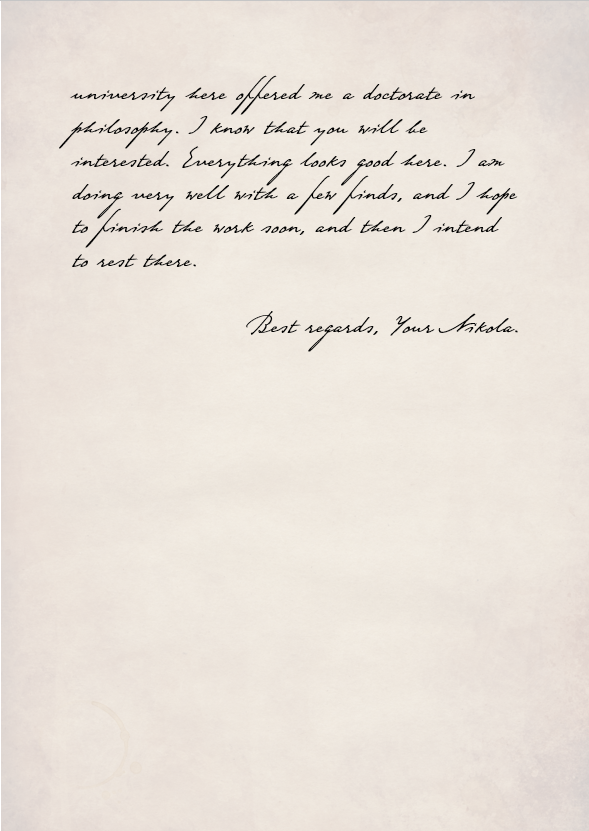 university here offered me a doctorate in
philosophy. I know that you will be
interested. Everything looks good here. I am
doing very well with a few finds, and I hope
to finish the work soon, and then I intend
to rest there.
Best regards, Your Nikola.